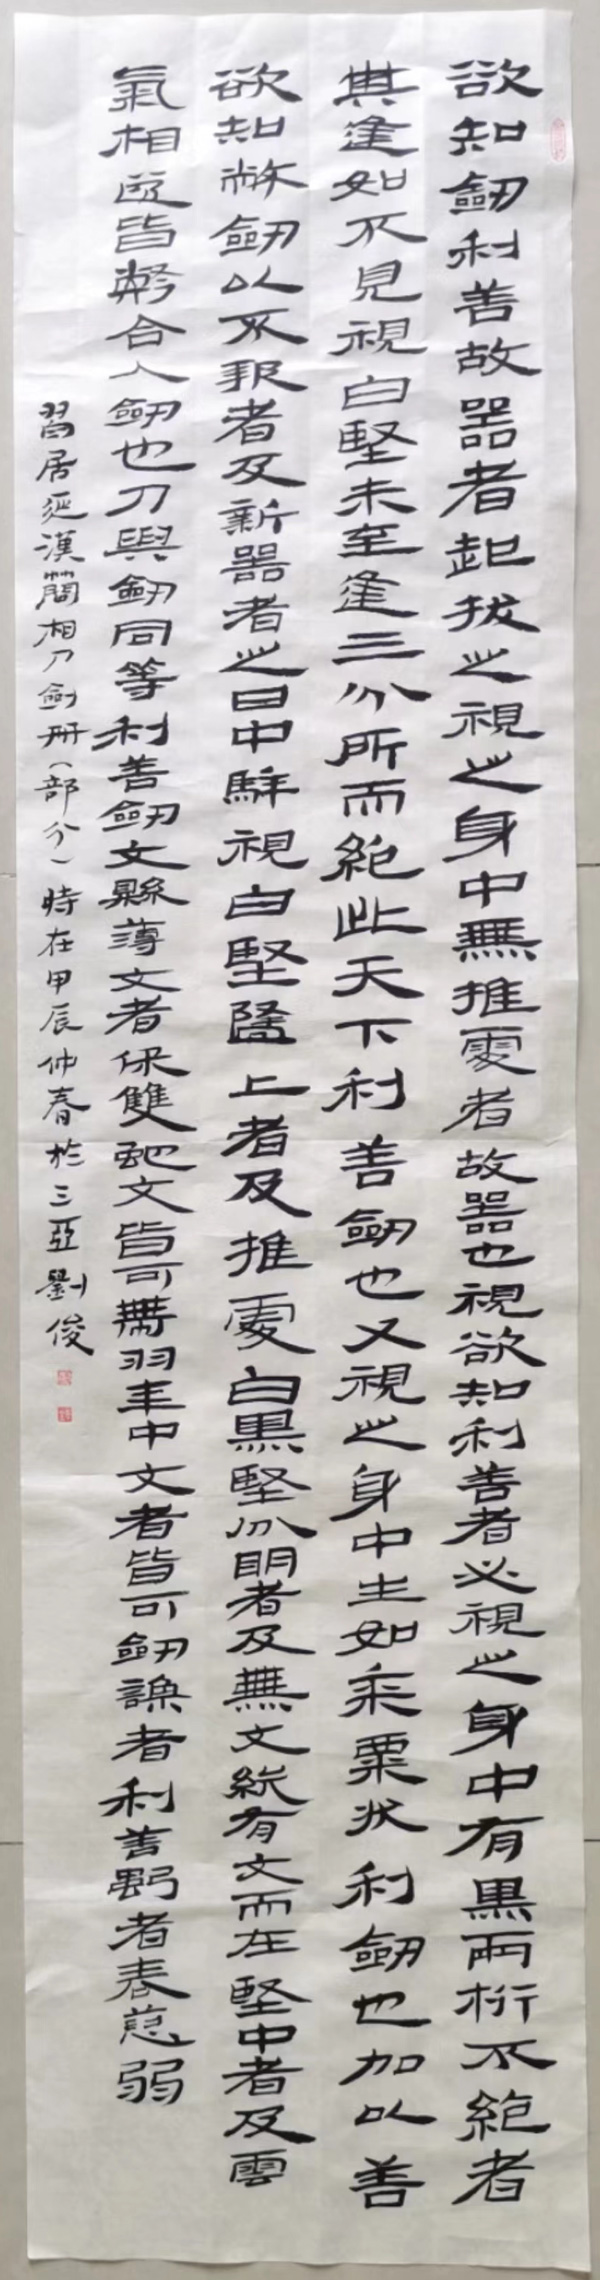 欲知劒利善故器者起拔之視之身中無推處者故器也視欲知利善者必視之身中有黑兩桁不絶者
其逢如不見視白堅未至逢三分所而絶此天下利善劒也又視之身中生如黍粟狀利劒也加以善
欲知幣劒以不報者及新器者之日中騂視白堅隨上者及推處白黑堅分明者及無文縱有文而在堅中者及雲
氣相遂皆幣合人劒也刀與劒同等利善劒文縣薄文者保雙蛇文皆可帶羽圭中文者皆可劒謙者利善弊者春慈弱
習居延漢簡相刀劍冊(部分)時在甲辰仲春於三亞劉俊